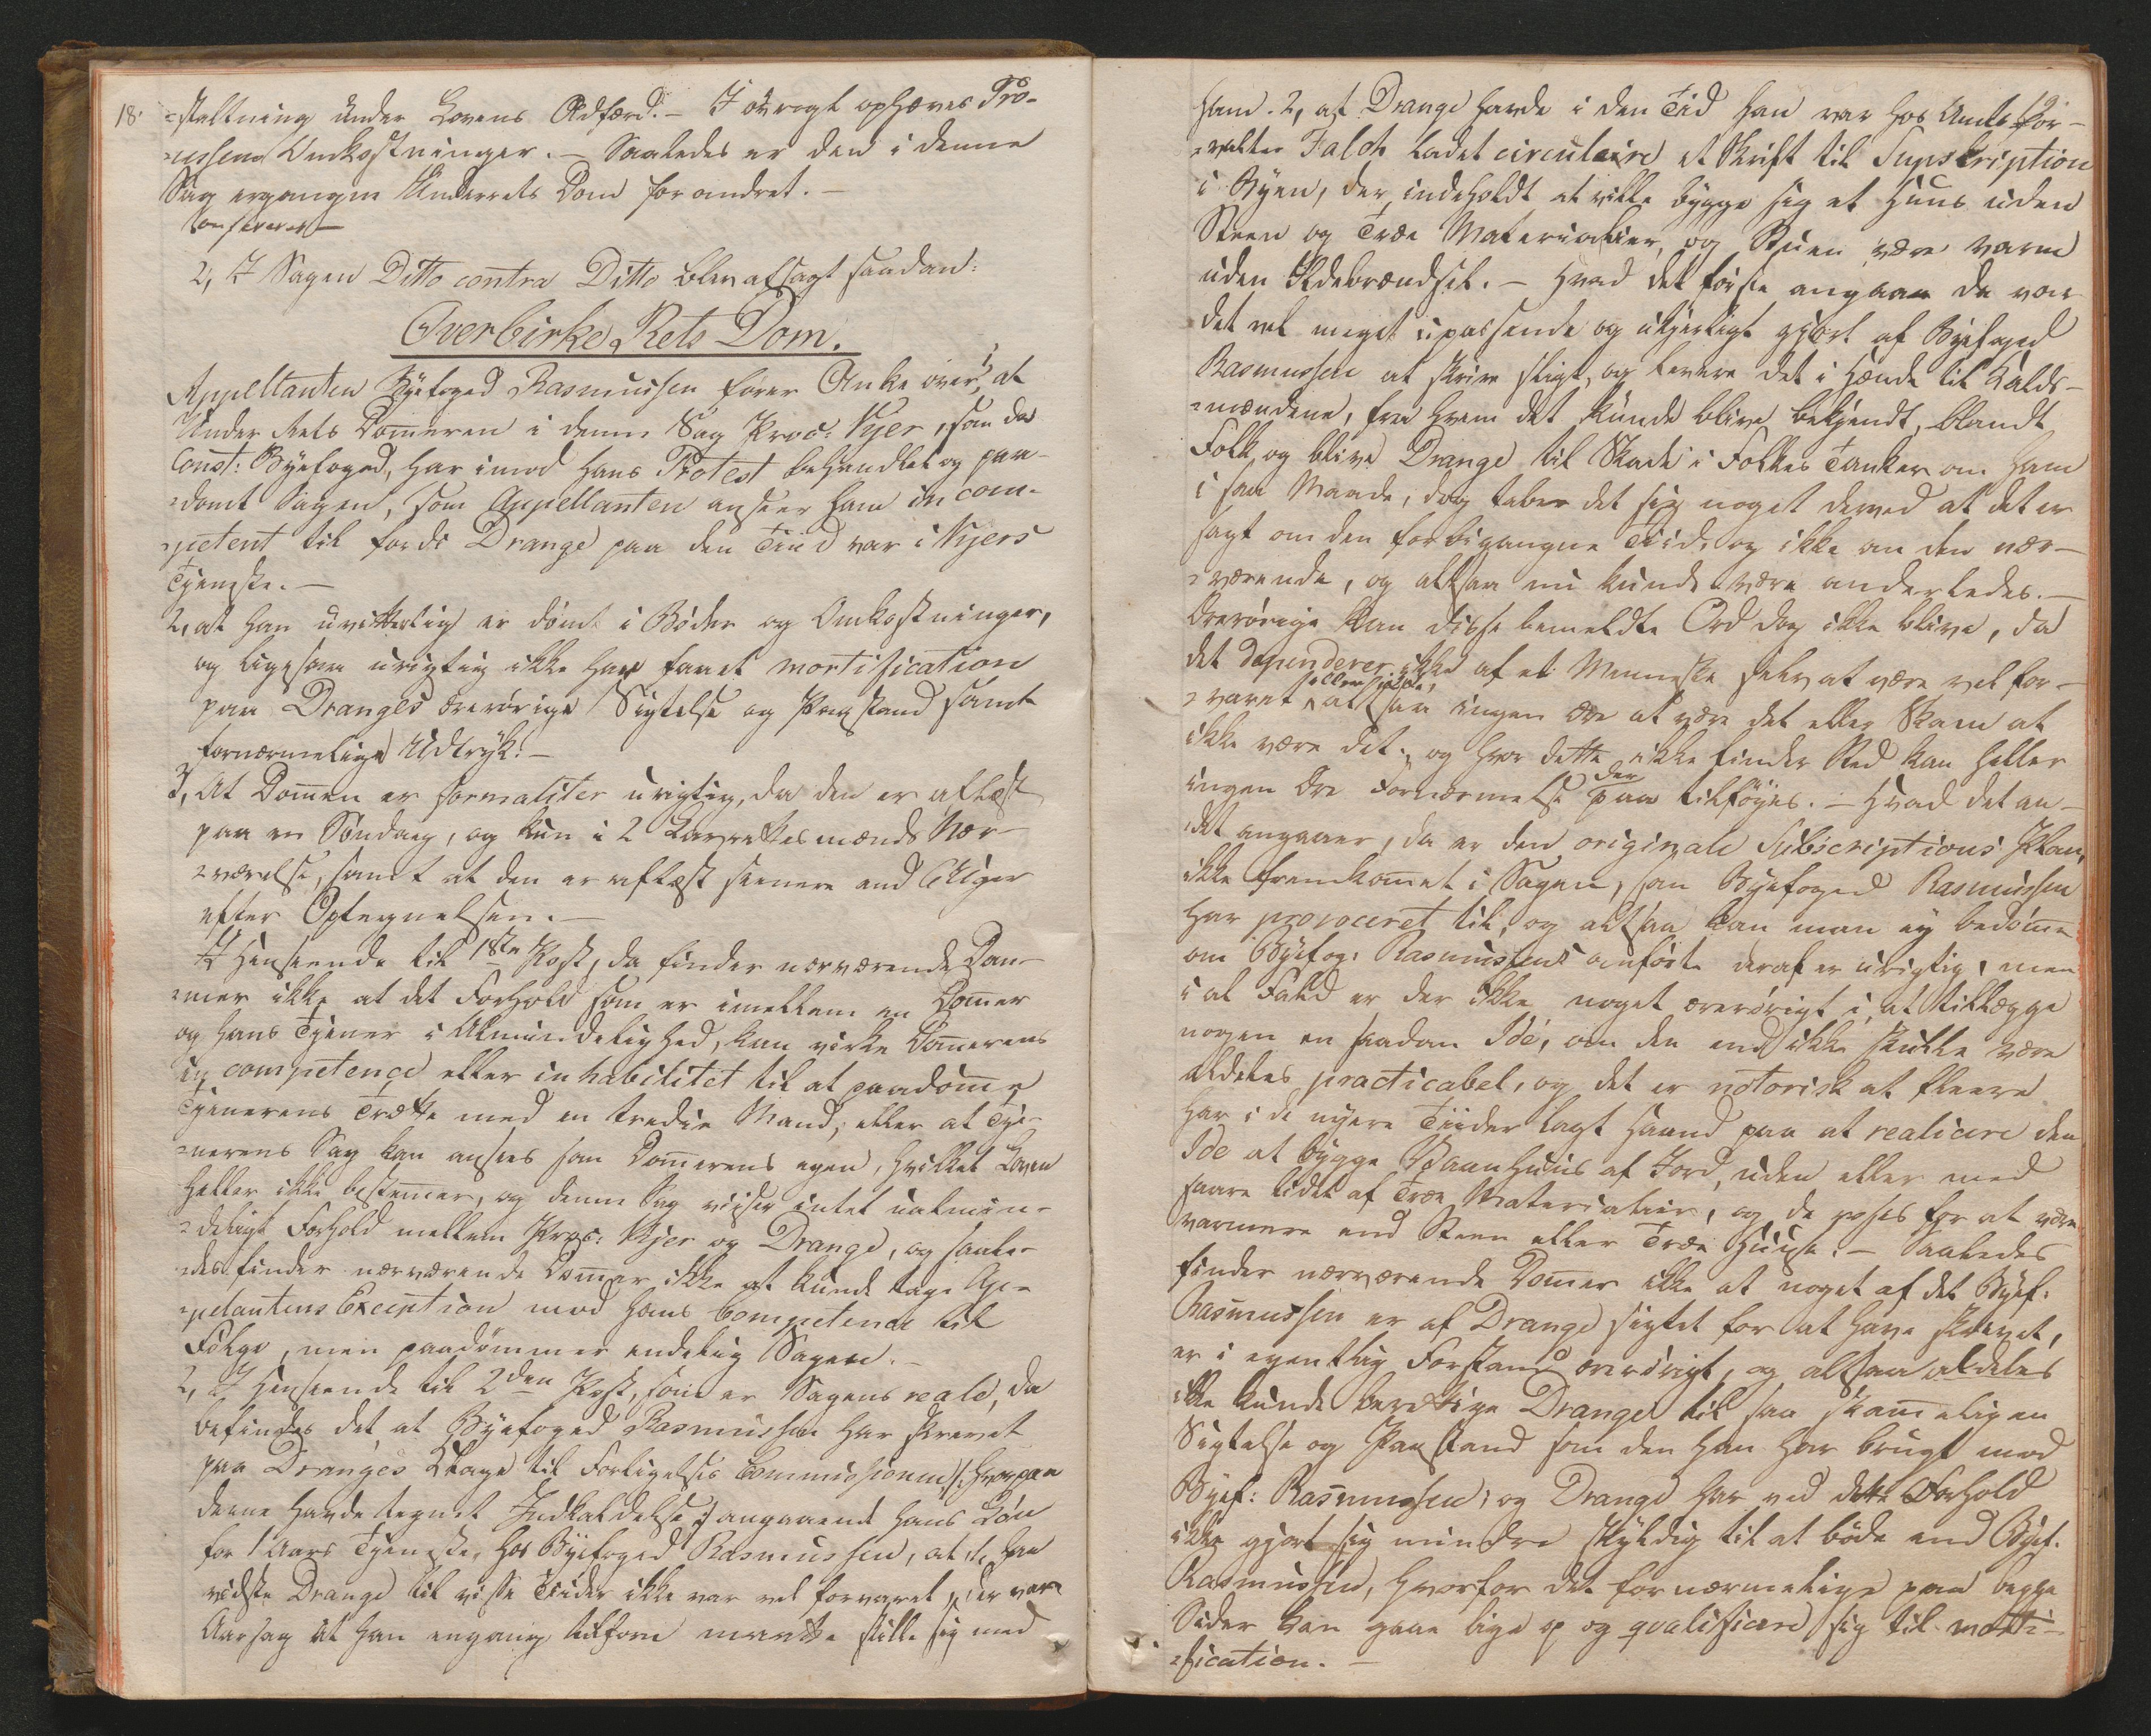 18.
-staltning under Lovens Adfærd. - I øvrigt ophæves Pro-
-cessens Omkostninger. - Saaledes er den i denne
Sag ergangne Underrets Dom forandret. -
2, I Sagen Ditto contra Ditto blev afsagt saadan:
Overbirke Rets Dom.
Appellanten Byefoged Rasmussen fører Anke over 1, at
Under Rets Dom̄eren i denne Sag Proc: Kyer, som da
Const: Byefoged, har imod hans Protest behandlet og paa-
-dømt Sagen, som Appellanten anseer ham incom-
-petent til fordi Drange paa den Tiid var i Kyers
Tjeneste. -
2, at han uvitterlig er dømt i Bøder og Omkostninger,
og ligesom urigtig ikke har faaet mortification
paa Dranges ærerørige Sigtelse og Paastand samt
fornærmelige Udtryk. -
3, At Dom̄en er formaliter urigtig, da den er aflæst
paa en Søndag, og kun i 2 Laugrettesmænds Nær-
-værelse, samt at den er aflæst senere end 6 Uger
efter Optagnelsen. -
I Henseende til 1ste Post, da finder nærværende Dom-
-mer ikke at det Forhold som er imellem en Dom̄er
og hans Tjener i Almindelighed, kan virke Dom̄erens
in competence eller inhabilitet til at paadøm̄e
Tjenerens Trætte med en tredie Mand, eller at Tje-
-nerens Sag kan ansees som Dom̄erens egen, hvilket Loven
heller ikke bestem̄er, og denne Sag viiser intet ualmin-
-deligt Forhold mellem Proc: Kyer og Drange, og saale-
-des finder nærværende Dom̄er ikke at kunde tage Ap-
-pelantens Exception mod hans Competence til
Følge, men paadømmer endelig Sagen. -
2, I Henseende til 2den Post, som er Sagens reale, da
befindes det at Byefoged Rasmussen har skrevet
paa Dranges Klage til Forligelses Commissionen /: hvorpaa
denne havde tegnet Indkaldelse :/ angaaende hans Løn
for 1 Aars Tjeneste, hos Byefoged Rasmussen, at 1, han
vidste Drange til visse Tiider ikke var vel forvaret, der var
Aarsag at han engang tilforn maatte skille sig med
ham. 2, at Drange havde i den Tid han var hos Amtsfor-
-valter Falch ladet circulaire et Skrift til Supskription
i Byen, der indeholdt at ville bygge sig et Huus uden
Steen og Træe Materialier, og Stuen være varm
uden Ildebrændsel. - Hvad det første angaaer da var
det vel meget upassende og ukjerligt gjort af Byefoged
Rasmussen at skrive sligt, og levere det i Hænde til Kalds-
-mændene, fra hvem det kunde blive bekjendt, blandt
Folk og blive Drange til Skade i Folkes Tanker om ham
i saa Maade, dog taber det sig noget derved at det er
sagt om den forbigangne Tiid, og ikke om den nær-
-værende, og altsaa nu kunde være anderledes. -
Ærerørige kan disse bemeldte Ord dog ikke blive, da
det dependerer ikke af et Menneske selv at være vel for-
-varet eller ikke, altsaa ingen Ære at være det eller Skam at
ikke være det, og hvor dette ikke finder Sted kan heller
ingen Ære Fornærmelse der paa tilføyes. - Hvad det an-
-det angaaer, da er den originale Subscriptions Plan,
ikke fremkom̄et i Sagen, som Byefoged Rasmussen
har provoceret til, og altsaa kan man ey bedøm̄e
om Byefog: Rasmussens anførte deraf er urigtig, men
i al Fald er der ikke noget ærerørigt i, at tillægge
nogen en saadan Idé, om den end ikke skulle være
aldeles practicabel, og det er notorisk at fleere
har i de nyere Tiider lagt Haand paa at realicere den
Ide at bygge Vaanhuus af Jord, uden eller med
saare lidet af Træe Materialier, og de roses for at være
varmere end Steen eller Træe Huuse. - Saaledes
finder nærværende Dom̄er ikke at noget af det Byef:
Rasmussen er af Drange sigtet for at have skrevet,
er i egentlig Forstand ærerørigt, og altsaa aldeles
ikke kunde berettige Drange til saa skam̄eligen
Sigtelse og Paastand som den han har brugt mod
Byef: Rasmussen; og Drange har ved dette Forhold
ikke gjort sig mindre skyldig til at bøde end Byef.
Rasmussen, hvorfor det fornærmelige paa begge
Sider kan gaae lige op og qvalificere sig til morti-
-fication. -